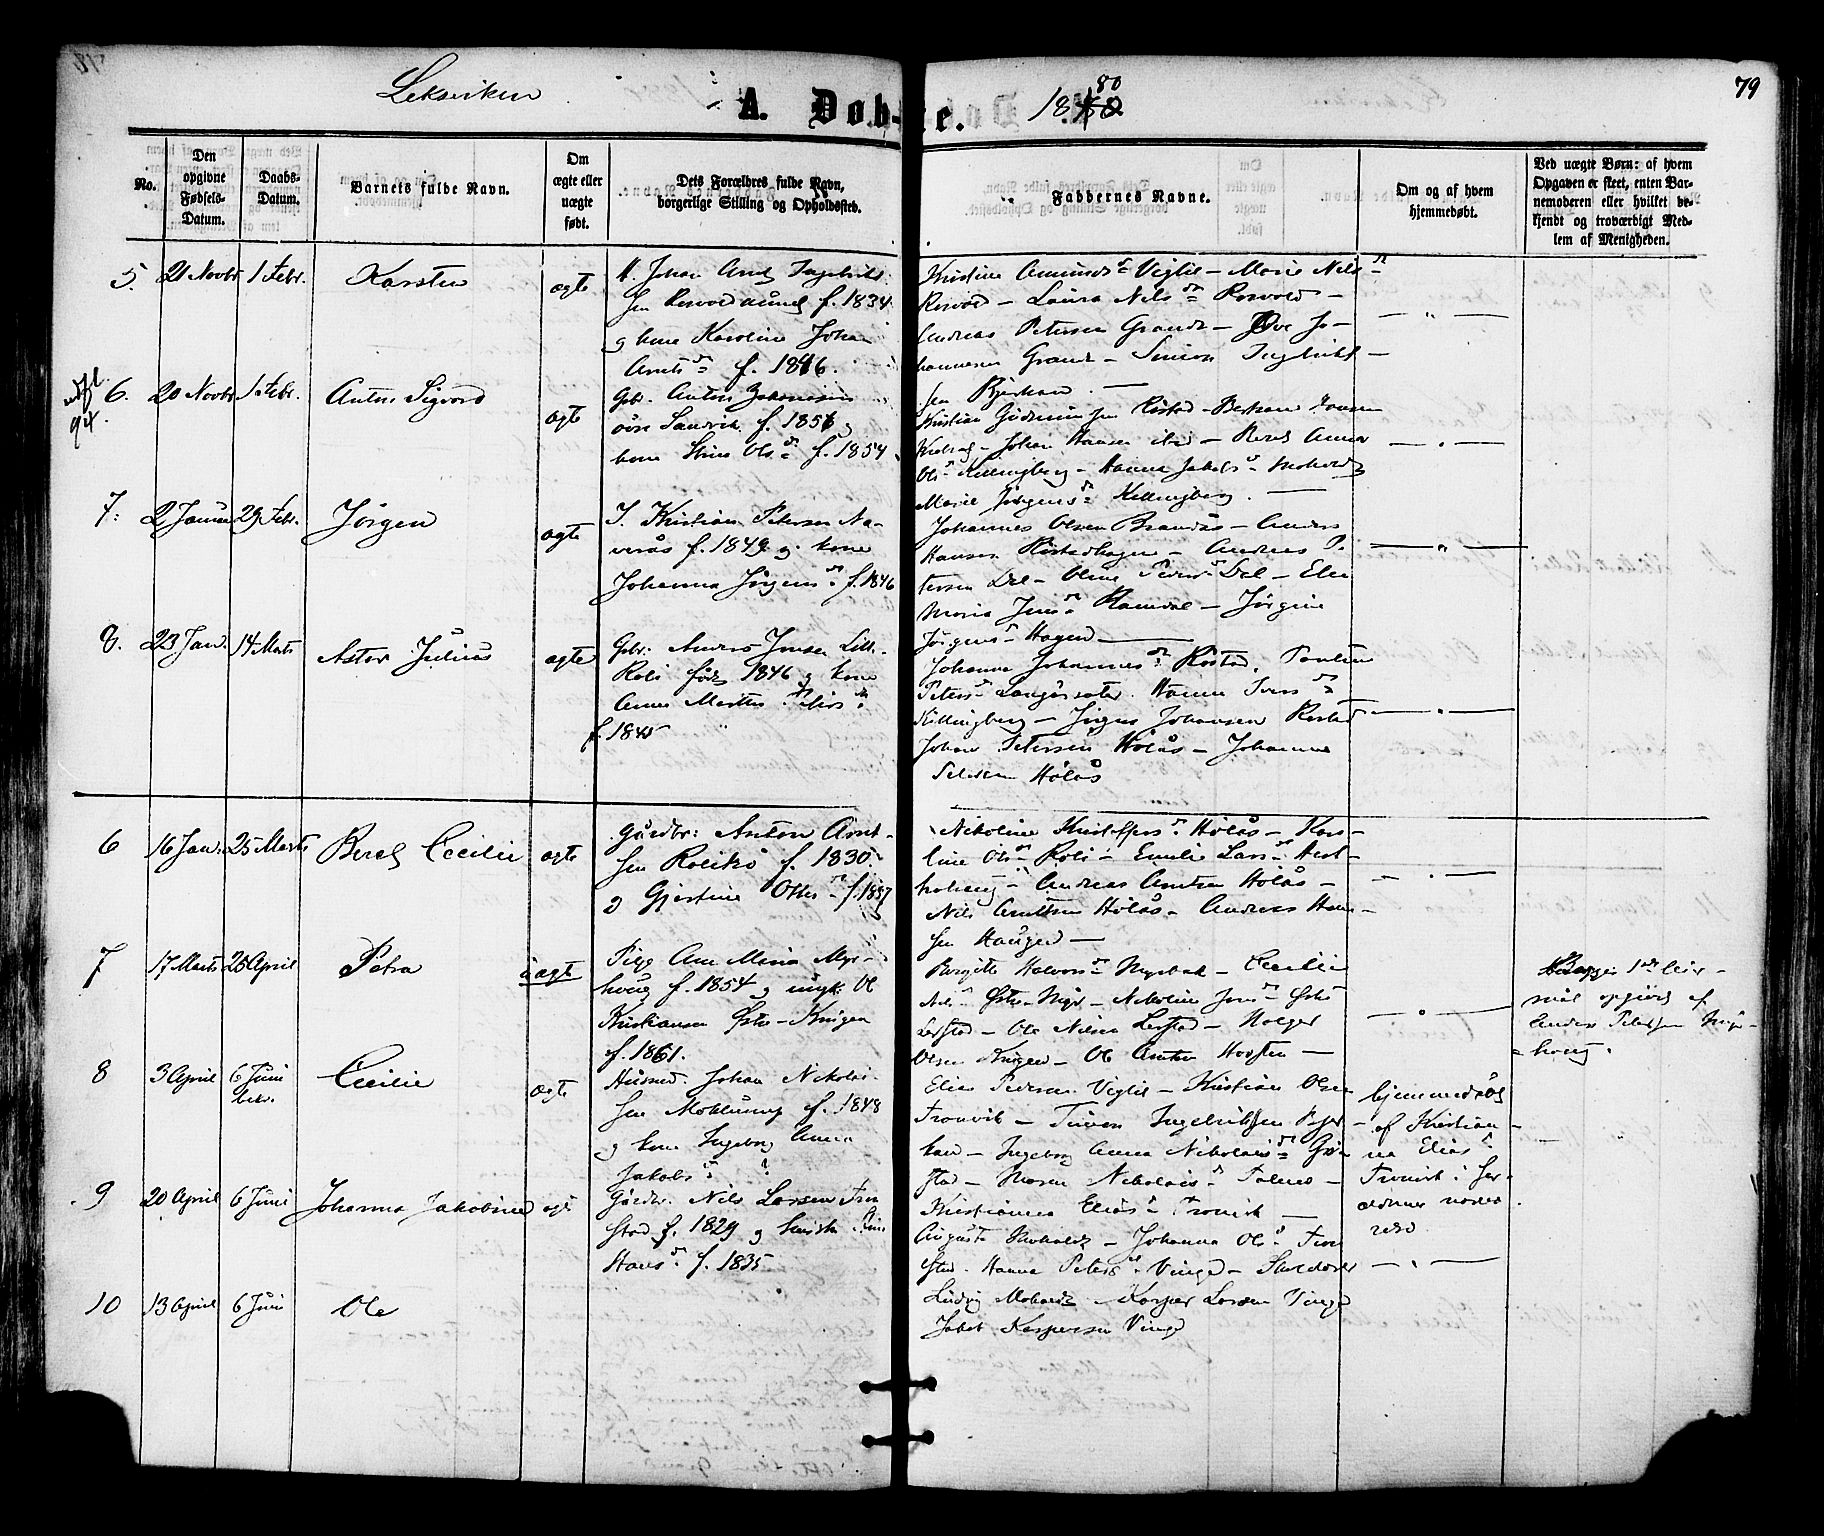 Leksviken
A. Døbte. 1880
79
No.
Den opgivne Fødsels-Datum.
Daabs-Datum.
Barnets fulde Navn.
Om ægte eller uægte født.
Dets Forældres fulde Navn, borgerlige Stilling og Opholdssted.
Faddernes Navne.
Om og af hvem hjemmedøbt.
Ved uægte Børn: af hvem Opgaven er skeet, enten Barnemoderen eller hvilket bekjendt og troværdigt Medlem af Menigheden.
5. 21 Novbr 1 Febr. Karsten ægte
f. 1834
og kone Karoline Johan
Arnts dr f. 1846.
Kristine Amunds dr Viglil – Marie Nils dr
Rosvold – Laura Nils dr Rosvold –
Andreas Petersen Grande – Ove Jo-
hannesen Grande – Simon
sen Bjerkan. —
6. 20 Novbr 1 Febr. Anton Sigvard ægte
94.
Gbr. Anton Johannesen
Sandvik f. 1856 og
kone Stine Ols dr f. 1854
Kristian Gudmundsen Rostad – Hansen
– Johan Hansen ibid – Beret Anna
Ols dr Killingberg – Hanna Jakobs dr Moholdt
Marie Jørgens dr Killingberg. —
7. 2 Januar 29 Febr. Jørgen ægte
I. Kristian Petersen Na-
verås f. 1849 og kone
Johanna Jørgens dr f. 1846
Johannes Olsen Brandås – Anders
Hansen Rostadhagen – Andreas P.
tersen Dal – Oline Peders dr Dal – Elen
Maria Jens dr Ramdal – Jørgine
Jørgens dr Hagen —
8. 23 Jan. 14 Marts Astor Julius ægte
Gbr. Anders Jensen Lill-
Roli født 1846 og kone
Anne Martha Peters dr
f. 1845
Johanna Johannes dr Rostad. Pauline
Peters dr Langåssæter. Hanna Ivers dr
Killingberg – Jørgen Johansen Rostad
Johan Petersen Holås – Johanna
Petersen Holås
6 16 Jan. 25 Marts Beret Cecilie ægte
Gårdbr: Anton Arnt-
sen f. 1830
og Gjertine Ottes dr f. 1837
Nikoline Kristoffers dr Holås – Karo-
line Ols dr Roli – Emilie Lars dr
– Andreas Arntsen Holås –
Nils Arntsen Holås – Andreas Han-
sen Haugen —
7 17 Marts 25 April Petra uægte
Pige Ane Maria Myr-
houg f. 1854 og ungk. Ol
Kristiansen Østre-Kvigen
f. 1861.
Birgitte Halvors dr Myrbak – Cecilie
Nils dr – Nikoline Jens dr Østre
Lerstad – Ole Nilsen Lerstad – Holger
Olsen Kvigen – Ol Anton Hoosten —
Begges 1ste Leier-
mål opgivet af
Anders Petersen Myr-
houg.
8 3 April 6 Juni bekr. Cecilie ægte
Husmd. Johan Nikolai-
sen f. 1848
og kone Ingeborg Anna
Jakobs dr ?
Elias Pedersen Viglil – Kristian Olsen
Tronvik – Ingebriktsen Bjer
kan – Ingeborg Anna Nikolais dr Grøn
stad – Maren Nikolais dr –
Kristianna Elias dr Tronvik —
hjemmedøbt
af Kristian-
na Elias dr
Tronvik i For-
ældrenes nærvæ
relse
9 20 April 6 Juni Johanna Jakobine ægte
Gårdbr. Nils Larsen Tron
stad f. 1829 og hustru
Hans dr f. 1835
Augusta Moholdt – Johanna Ols dr Tron
stad. Hanna Peters dr Vinge –
Ludvig Moholdt – Kasper Larsen Vinge
Jakob Kaspersen Vinge
10 13 April 6 Juni Ole